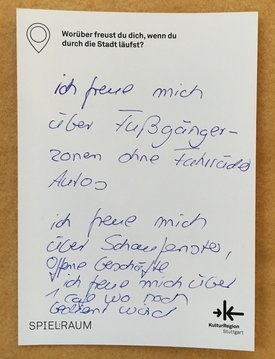 Worüber freust du dich, wenn du
durch die Stadt läufst?
ich freue mich
über Fußgänger-
zonen ohne Fahrräder
Autos
ich freue mich
über Schaufenster,
offene Geschäfte
ich freue mich über
1 cafe wo noch
bedient wird
SPIEL:RAUM
KulturRegion
Stuttgart